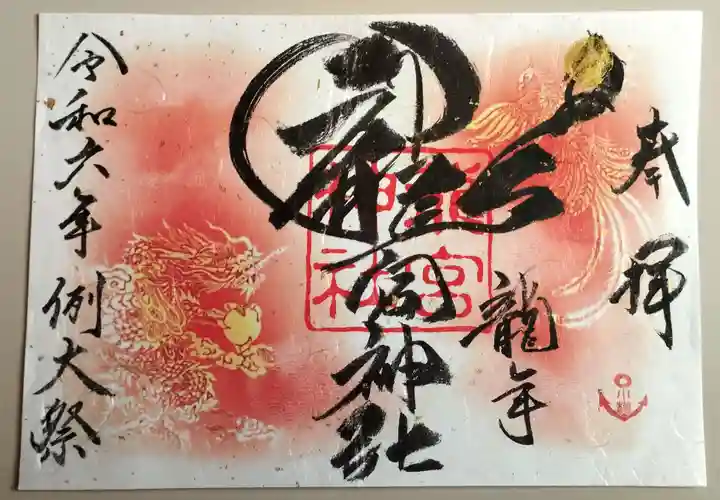 奉拝
龍年
龍宮神社
龍宮神社
令和六年 例大祭